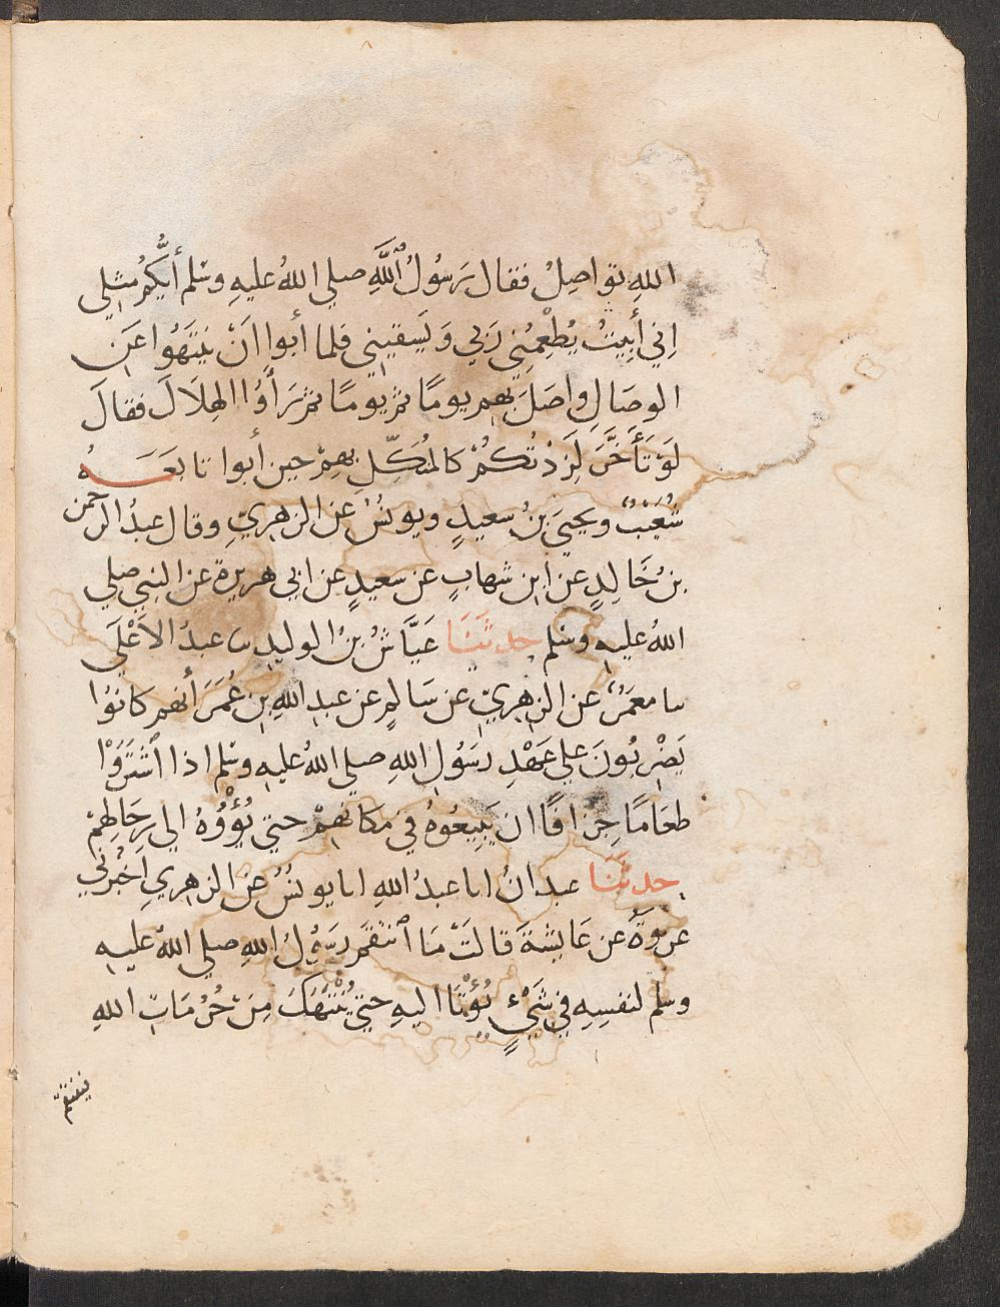 اللهِ تواصِلْ فقال رَسُولُ ٱللَّهِ صلي اللهُ عليهِ وسَلم أيُّكُمْ مِثلِي
اِني أَبِيتُ يُطْعِمُنِي رَبي وَيَسقِيني فلما أبوا انْ يَنتَهُوا عَنِ
الوِصَالِ واصَلَ بهِم يومًا ثم يومًا ثم رَأَوُا الهِلَالَ فقالَ
لَوْ تَأَخَّرَ لَزِدْتُكُمْ كالمُنَكِّلِ بهِمْ حين أبوا تابعَهُ
شُعَيْبٌ ويحيَى بنُ سعِيدٍ ويونُسُ عن الزهرِيّ وقال عبدُ الرحمن
بنُ خَالدٍ عن ابنِ شهابٍ عن سعيدٍ عن ابي هريرة عن النبي صلي
اللهُ عليهِ وسَلم حدثَنَا عَيَّاشُ بنُ الوليدِ سا عبدُ الاَعْلَى
سا معمَرٌ عن الزهرِيّ عن سَالمٍ عن عبدِ اللهِ بنِ عُمَرَ أنهم كانوُا
يَضْرِبُونَ علي عَهْدِ رسَوُلِ اللهِ صلي اللهُ عليهِ وسَلم اذا ٱشْتَرَوْا
طعَامًا جِزافًا ان يَبِيعُوهُ في مكانهِمْ حتي يُؤْوُهُ الي رِحَالهِمْ
حدثَنَا عبدانُ انا عبدُ اللهِ انا يونسُ عن الزهري اخْبرَني
عروةُ عن عَايشةَ قالتْ مَا ٱنْتقَمَ رسَوُلُ اللهِ صلي اللهُ عليهِ
وسلم لنفسِهِ في شَيْءٍ يُؤْتَا اليهِ حتي يُنْتَهَكَ مِنْ حُرُمَاتِ اللهِ
فينتقمَ